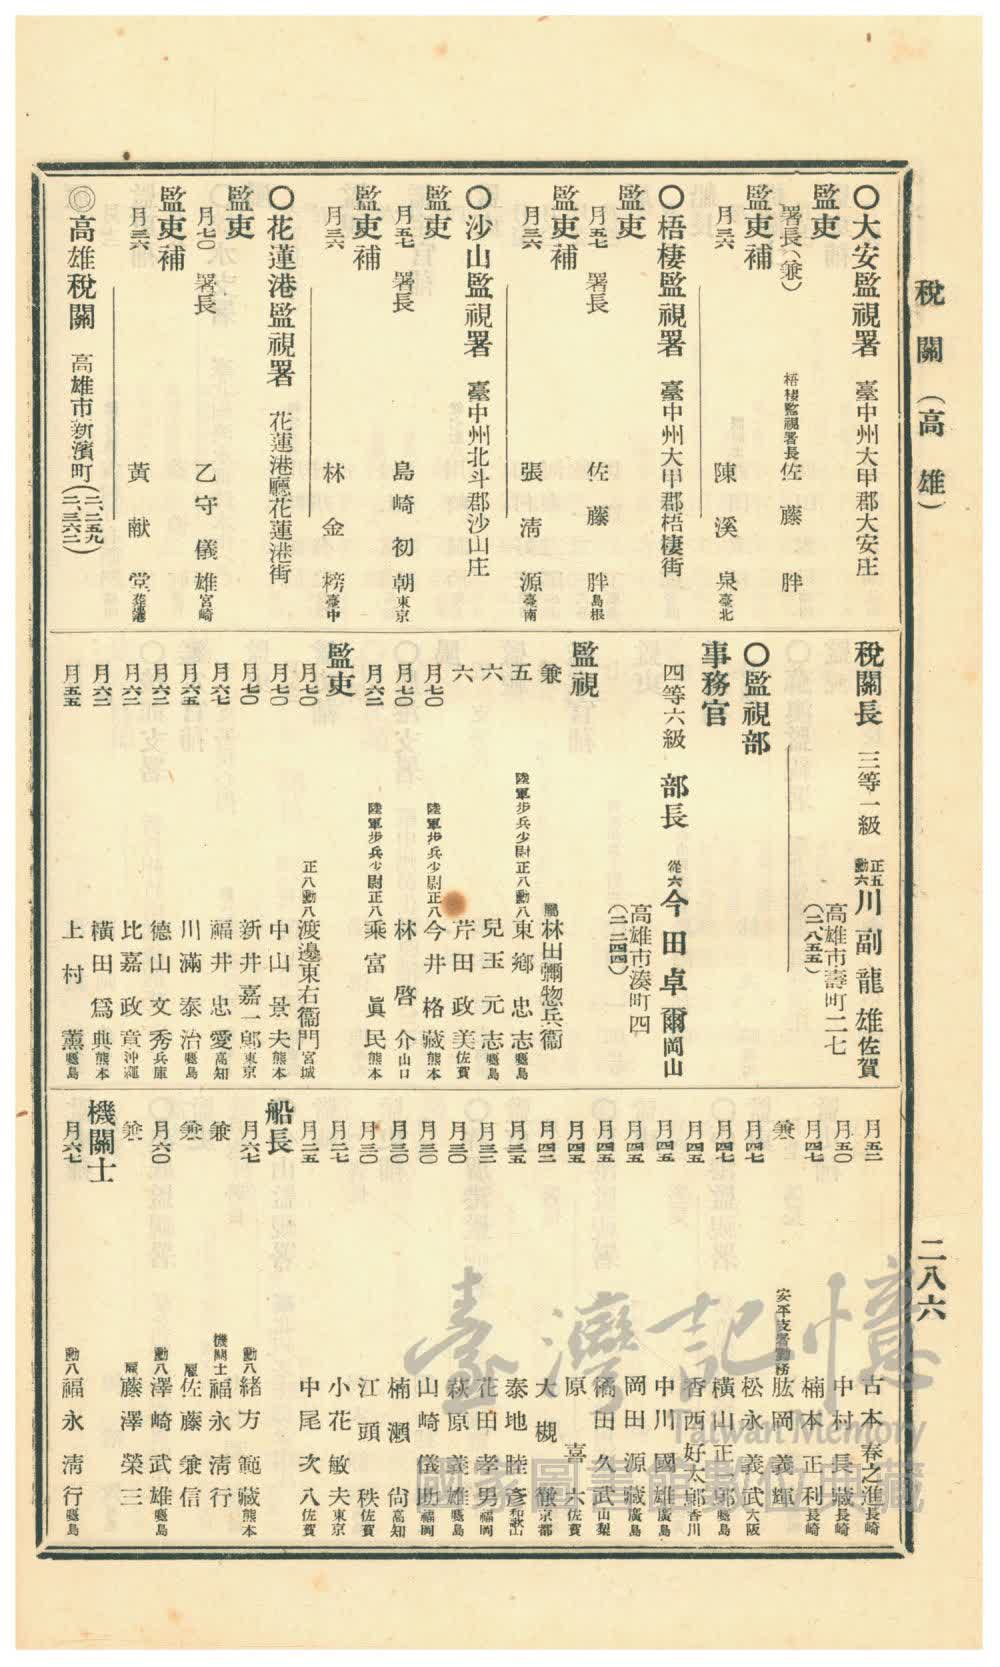 稅關（高雄）
二八六
○大安監視署　臺中州大甲郡大安庄
監吏
署長（兼）　梧棲監視署長　佐藤胖
監吏補
月三六　陳溪泉　臺北
○梧棲監視署　臺中州大甲郡梧棲街
監吏
月五七　署長　佐藤胖　島根
監吏補
月三六　張清源　臺南
○沙山監視署　臺中州北斗郡沙山庄
監吏
月五七　署長　島崎初朝　東京
監吏補
月三六　林金榜　臺中
○花蓮港監視署　花蓮港廳花蓮港街
監吏
月七〇　署長　乙守儀雄　宮崎
監吏補
月三六　黃献堂　花蓮港
◎高雄稅關　高雄市新濱町（二、二五九 二、三六二）
稅關長　三等一級　正五勳六　川副龍雄　佐賀
高雄市壽町二七
（二、八五五）
○監視部
事務官
四等六級　部長　從六　今田卓爾　岡山
高雄市湊町四
（二、二四四）
監視
兼　屬　林田彌惣兵衞
五　陸軍步兵少尉正八勳八　東鄉忠志　鹿兒島
六　兒玉元志　鹿兒島
六　芹田政美　佐賀
月七〇　陸軍步兵少尉正八　今井格藏　熊本
月七〇　林啓介　山口
月六二　陸軍步兵少尉正八　乘富眞民　熊本
監吏
月七〇　正八勳八　渡邊東右衞門　宮城
月七〇　中山景夫　熊本
月七〇　新井嘉一郞　東京
月六七　福井忠愛　高知
月六五　川滿泰治　鹿兒島
月六二　德山文秀　兵庫
月六二　比嘉政章　沖繩
月六二　橫田爲典　熊本
月五五　上村薰　鹿兒島
月五二　古本春之進　長崎
月五〇　中村長藏　長崎
月四七　楠本正利　長崎
兼　安平支署勤務　肱岡義輝
月四七　松永義武　大阪
月四七　橫山正郞　鹿兒島
月四五　香西好太郞　香川
月四五　中川國雄　廣島
月四五　岡田源藏　廣島
月四五　橘田久武　山梨
月四五　原喜六　佐賀
月四二　大槻徹　京都
月三五　泰地睦彥　和歌山
月三二　花田孝男　福岡
月三〇　萩原義雄　鹿兒島
月三〇　山崎儀助　福岡
月三〇　楠瀨尙　高知
月三〇　江頭秩　佐賀
月二七　小花敏夫　東京
月二五　中尾次八　佐賀
船長
月六七　勳八　緒方範藏　熊本
兼　機關士　福永清行
兼　雇　佐藤兼信
月六〇　勳八　澤崎武雄　鹿兒島
兼　雇　藤澤榮三
機關士
月六七　勳八　福永清行　鹿兒島
臺灣記憶
Taiwan Memory
國家圖書館數位典藏